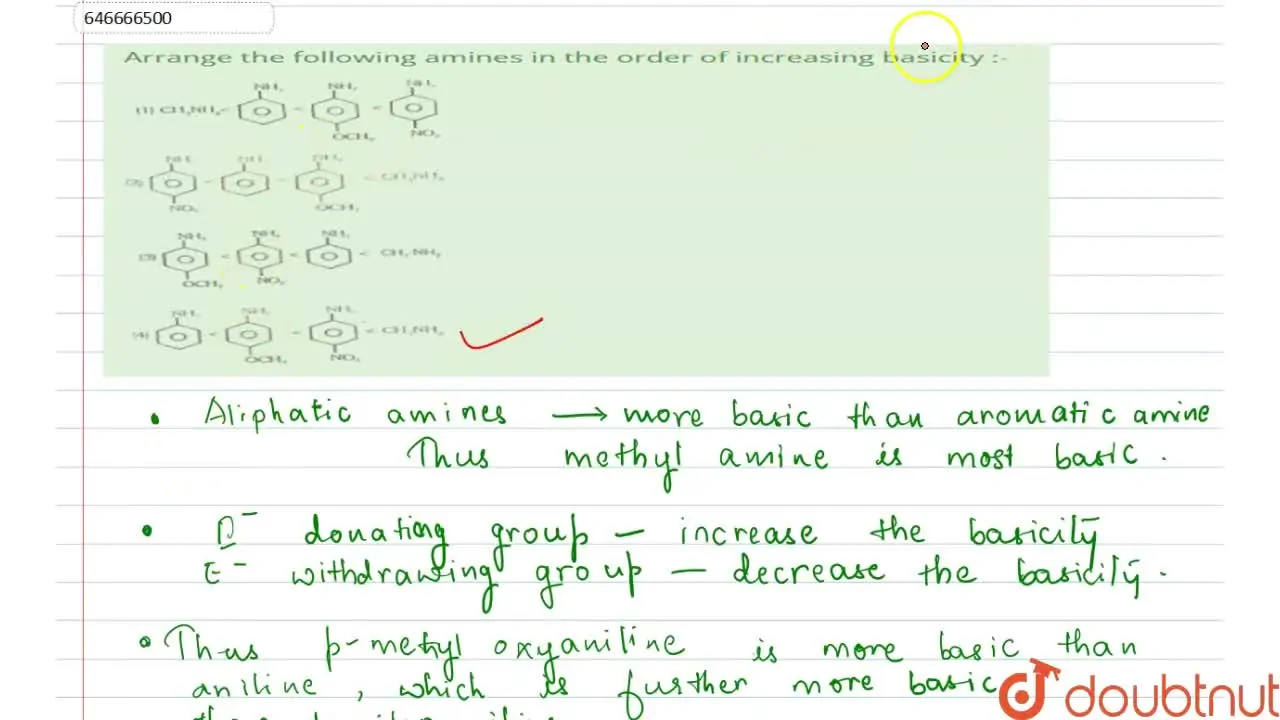 646666500
Arrange the following amines in the order of increasing basicity :-
(1) CH₃NH₂ < NH₂ < NH₂ OCH₃ < NH₂ NO₂
(2) NH₂ NO₂ < NH₂ < NH₂ OCH₃ < CH₃NH₂
(3) NH₂ OCH₃ < NH₂ NO₂ < NH₂ < CH₃NH₂
(4) NH₂ < NH₂ OCH₃ < NH₂ NO₂ < CH₃NH₂
• Aliphatic amines → more basic than aromatic amine
Thus methyl amine is most basic.
• E⁻ donating group – increase the basicity
E⁻ withdrawing group – decrease the basicity.
• Thus p-methyl oxyaniline is more basic than
aniline, which is further more basic
doubtnut